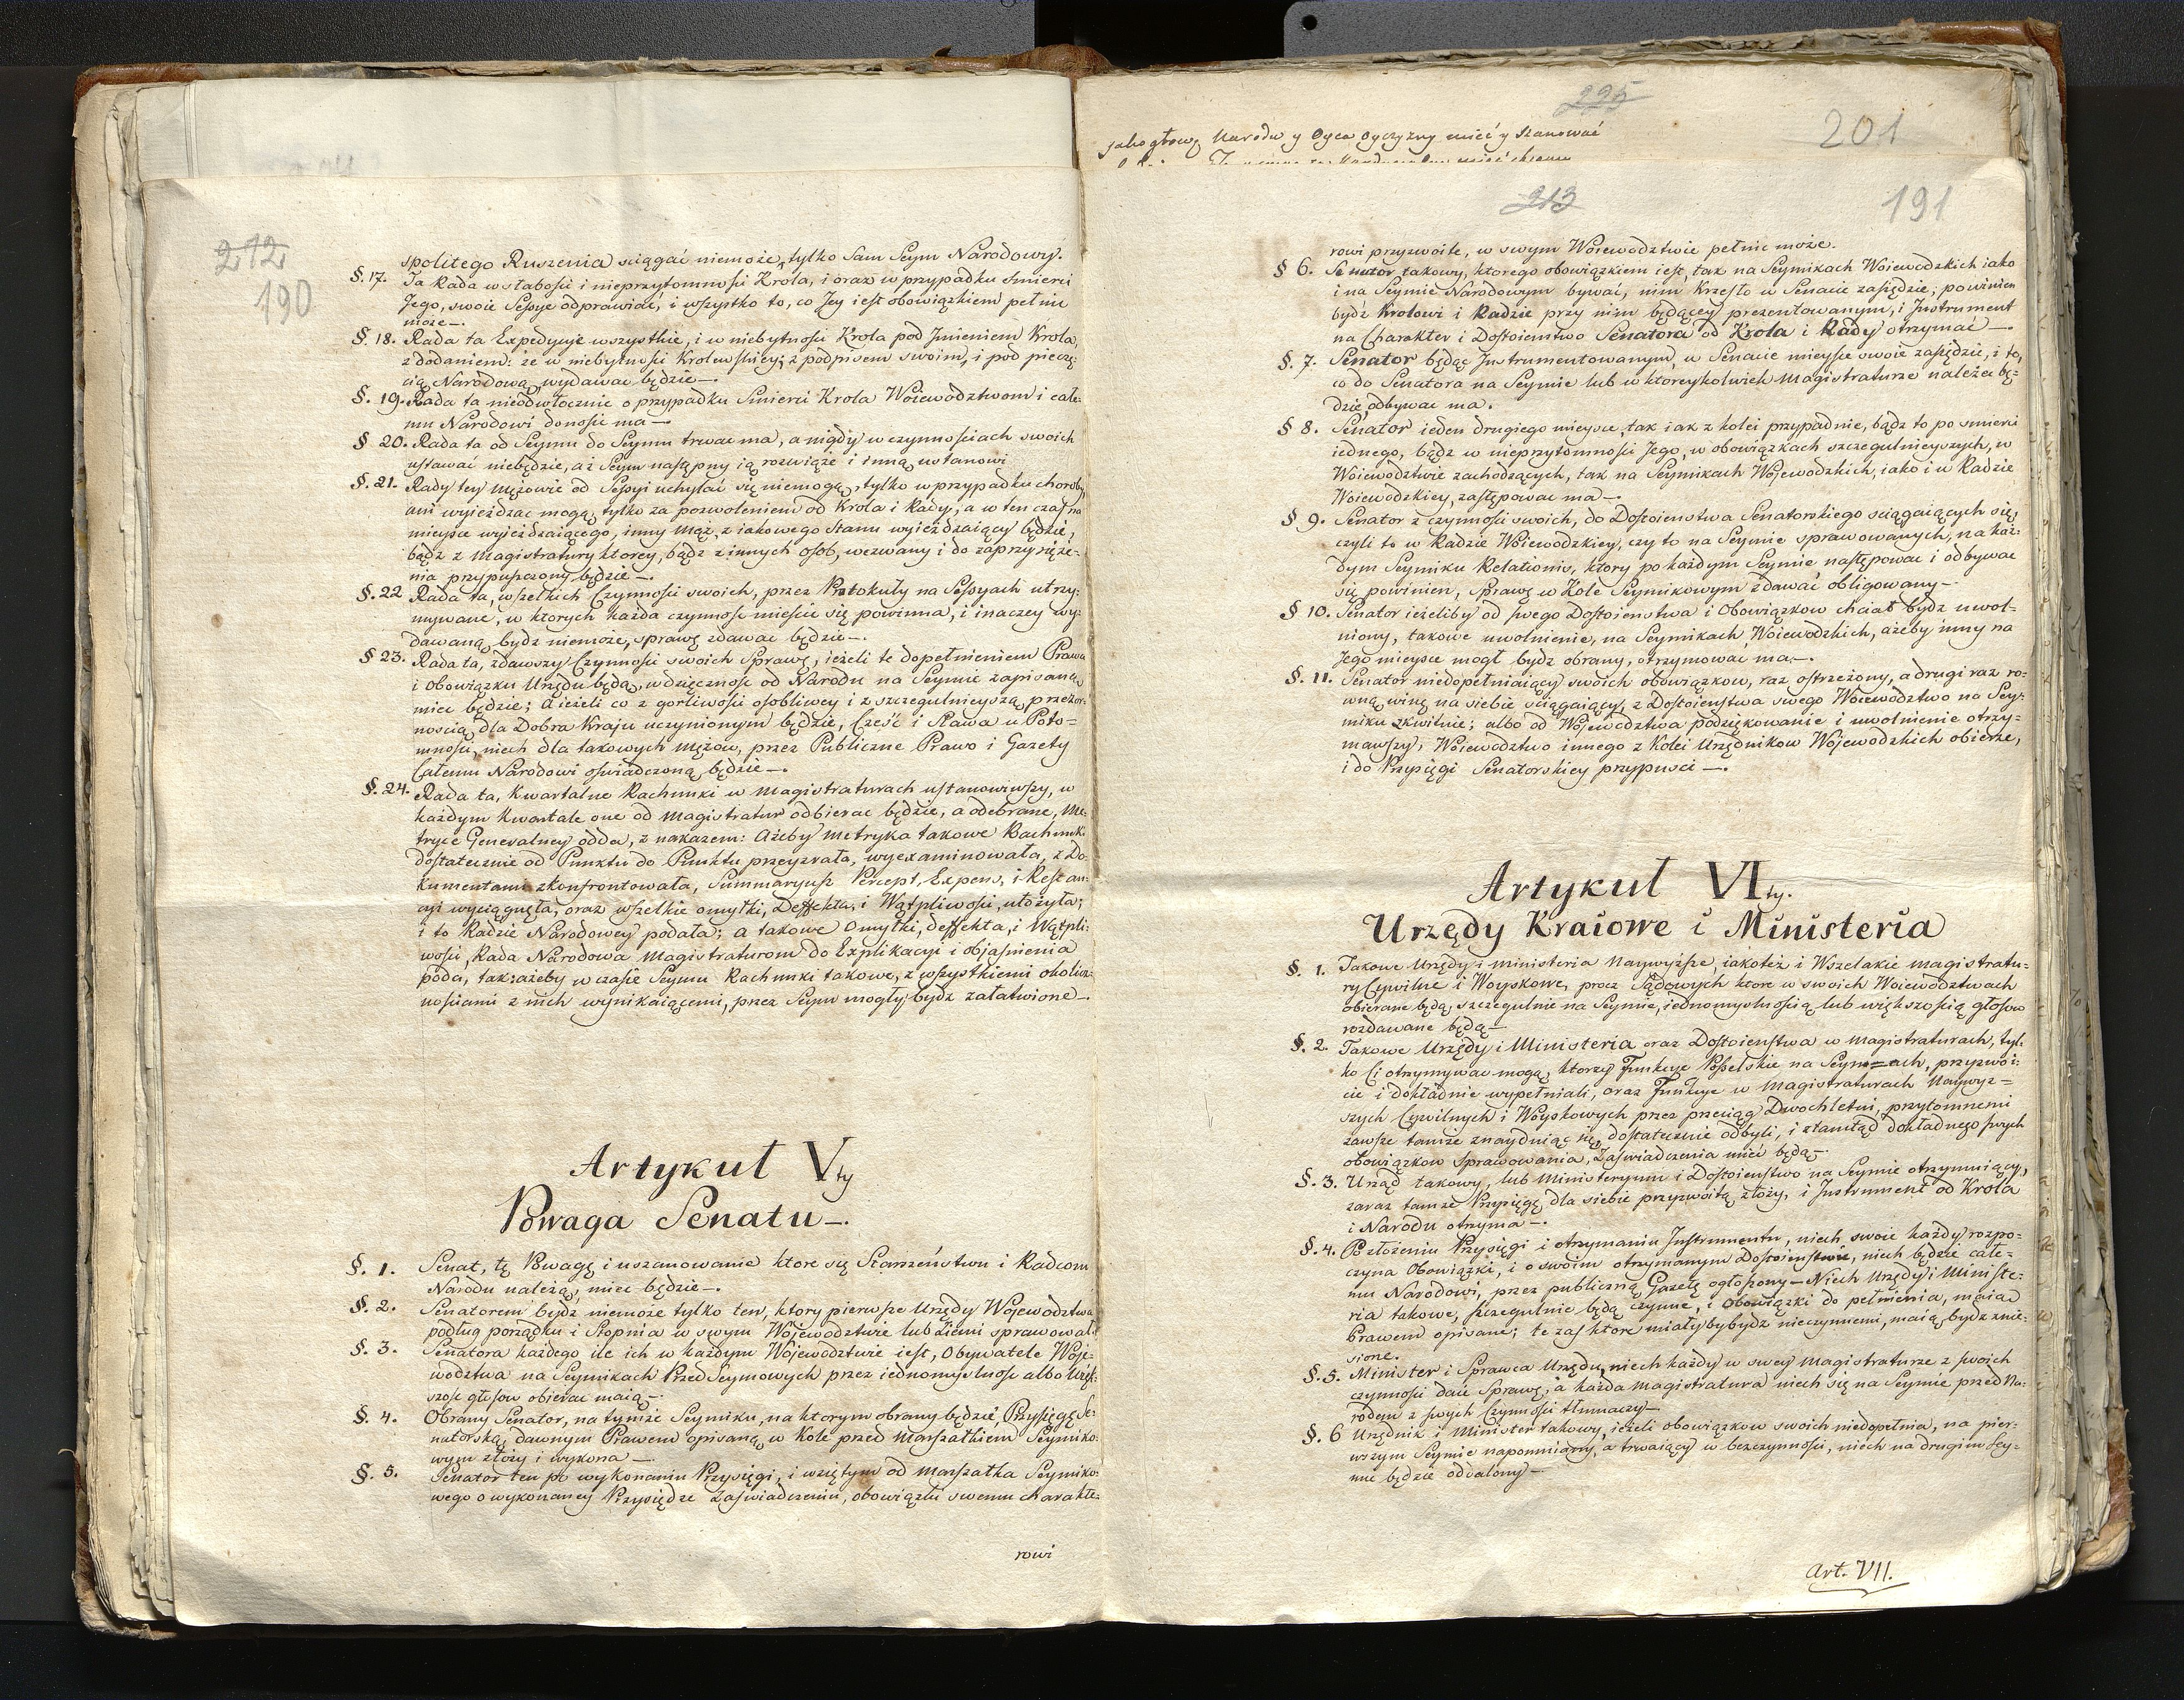 212
190
spolitego Ruszenia sciągać niemoże, tylko Sam Seym Narodowy.
§. 17. Ta Rada w słabości i nieprzytomności Krola, i oraz w przypadku śmierci
Jego, swoie Sessye odprawiać, i wszystko to, co Jey iest obowiązkiem pełnić
może—.
§. 18. Rada ta Expedyuje wszystkie, i w niebytności Krola pod Jmieniem Krola,
z dodaniem: że w niebytności Krolewskiey; z podpisem swoim, i pod pieczę-
cią Narodową wydawać będzie—.
§. 19. Rada ta nieodwłocznie o przypadku Smierci Krola Woiewodztwom i całe-
mu Narodowi donosić ma—.
§ 20. Rada ta od Seymu do Seymu trwać ma, a nigdy w czynnościach swoich
ustawać niebędzie, aż Seym następny ią rozwiąże i inną ustanowi
§. 21. Rady tey Mężowie od Sessyi uchylać się niemogą, tylko w przypadku choroby,
ani wyieżdzać mogą, tylko za pozwoleniem od Krola i Rady, a w ten czas na
mieysce wyieżdzaiącego, inny Mąż, z iakowego Stanu wyieżdzaiący będzie,
bądź z Magistratury ktorey, bądź z innych osob, wezwany i do zaprzysięże-
nia przypuszczony będzie—.
§. 22 Rada ta, wszelkich Czynności swoich, przez Protokuły na Sessyach utrzy-
mywane, w ktorych każda czynność mieścić się powinna, i inaczey wy-
dawaną bydź niemoże, sprawę zdawać będzie—.
§ 23. Rada ta, zdawszy Czynności swoich Sprawę, ieżeli te dopełnieniem Prawa
i Obowiązku Urzędu będą, wdzięczność od Narodu na Seymie zapisaną
mieć będzie; A ieżeli co z gorliwości osobliwey i z szczegulnieyszą przezor-
nością dla Dobra Kraju uczynionym będzie, Cześć i Sława u Poto-
mności, niech dla takowych Mężow, przez Publiczne Prawo i Gazety
Całemu Narodowi oświadczoną będzie—.
§. 24. Rada ta, Kwartalne Rachunki w Magistraturach ustanowiwszy, w
każdym Kwartale one od Magistratur odbierać będzie, a odebrane, Me-
tryce Generalney odda, z nakazem: Ażeby Metryka takowe Rachunki
dostatecznie od Punktu do Punktu przeyzrała, wyexaminowała, z Do-
kumentami zkonfrontowała, Summaryusz Percept, Expens, i Restan-
cyi wyciągnęła, oraz wszelkie omyłki, Deffekta, i Wątpliwości, ułożyła;
i to Radzie Narodowey podała; a takowe Omyłki, deffekta, i Wątpli-
wości, Rada Narodowa Magistraturom do Explikacyi i objaśnienia
poda, tak: ażeby w czasie Seymu Rachunki takowe, z wszystkiemi okolicz-
nościami z nich wynikaiącemi, przez Seym mogły bydź załatwione—.
Artykuł Vty
Powaga Senatu—.
§. 1. Senat, tę Powagę i uszanowanie ktore się Starszeństwu i Radcom
Narodu należą, mieć będzie—.
§. 2. Senatorem bydź niemoże tylko ten, ktory pierwsze Urzędy Woiewodztwa
podług porządku i Stopnia w swym Woiewodztwie lub Ziemi sprawował
§. 3. Senatora każdego ile ich w każdym Woiewodztwie iest, Obywatele Woie-
wodztwa na Seymikach Przed Seymowych przez iednomyślność albo więk-
szość głosow obierać maią—.
§. 4. Obrany Senator, na tymże Seymiku, na ktorym obrany będzie, Przysięgę Se-
natorską, dawnym Prawem opisaną, w Kole przed Marszałkiem Seymiko-
wym złoży i wykona—.
§. 5. Senator ten po wykonaniu Przysięgi, i wziętym od Marszałka Seymiko-
wego o wykonaney Przysiędze Zaświadczeniu, obowiązki swemu charakte-
rowi
225
201
jako głowę Narodu y Oyca oyczyzny mieć y szanować
213
191
rowi przyzwoite, w swym Woiewodztwie pełnić może.
§ 6. Senator takowy, ktorego obowiązkiem iest, tak na Seymikach Woiewodzkich iako
i na Seymie Narodowym bywać, nim Krzesło w Senacie zasiędzie; powinien
bydź Krolowi i Radzie przy nim będącey prezentowanym, i Jnstrument
na Charakter i Dostoienstwo Senatora od Krola i Rady otrzymać—.
§. 7. Senator będąc Jnstrumentowanym, w Senacie mieysce swoie zasiędzie, i to,
co do Senatora na Seymie lub w ktoreykolwiek Magistraturze należeć bę-
dzie, odbywać ma.
§ 8. Senator ieden drugiego mieysce, tak iak z kolei przypadnie, bądź to po śmierci
iednego, bądź w nieprzytomności Jego, w obowiązkach szczegulnieyszych, w
Woiewodztwie zachodzących, tak na Seymikach Woiewodzkich, iako i w Radzie
Woiewodzkiey, zastępować ma—.
§ 9. Senator z czynności swoich, do Dostoienstwa Senatorskiego sciągaiących się,
czyli to w Radzie Woiewodzkiey, czy to na Seymie sprawowanych, na Każ-
dym Seymiku Relationis, ktory po każdym Seymie następować i odbywać
się powinien, Sprawę w Kole Seymikowym zdawać obligowany—.
§ 10. Senator ieżeliby od swego Dostoienstwa i Obowiązkow chciał bydź uwol-
niony, takowe uwolnienie, na Seymikach Woiewodzkich, ażeby inny na
Jego mieysce mogł bydź obrany, otrzymować ma—.
§. 11. Senator niedopełniaiący swoich obowiązkow, raz ostrzeżony, a drugi raz ro-
wną winę na siebie sciągaiący, z Dostoienstwa swego Woiewodztwo na Sey-
miku zkwituie; albo od Woiewodztwa podziękowanie i uwolnienie otrzy-
mawszy, Woiewodztwo innego z Kolei Urzędnikow Woiewodzkich obierze,
i do Przysięgi Senatorskiey przypuści—.
Artykuł VIty.
Urzędy Kraiowe i Ministeria
§. 1. Takowe Urzędy i ministeria Naywyższe, iakoteż i Wszelakie Magistratu-
ry Cywilne i Woyskowe, procz Sądowych ktore w swoich Woiewodztwach
obierane będą, szczegulnie na Seymie, iednomyślnością lub większością głosow
rozdawane będą—
§. 2. Takowe Urzędy i Ministeria oraz Dostoienstwa w Magistraturach, tyl-
ko Ci otrzymywać mogą, ktorzy Funkcye Poselskie na Seymach, przyzwoi-
cie i dokładnie wypełniali, oraz Funkcye w Magistraturach Naywyż-
szych Cywilnych i Woyskowych przez przeciąg Dwochletni, przytomnemi
zawsze tamże znayduiąc się, dostatecznie odbyli, i ztamtąd dokładnego swych
obowiązkow Sprawowania, Zaświadczenia mieć będą—.
§. 3. Urząd takowy, lub Ministeryum i Dostoienstwo na Seymie otrzymuiący,
zaraz tamże Przysięgę dla siebie przyzwoitą złoży, i Jnstrument od Krola
i Narodu otrzyma—.
§. 4. Po złożeniu Przysięgi i otrzymaniu Jnstrumentu, niech swoie każdy rozpo-
czyna Obowiązki, i o swoim otrzymanym Dostoienstwie, niech będzie całe-
mu Narodowi, przez publiczną Gazetę ogłoszony— Niech Urzędy i Ministe-
ria takowe, szczegulnie będą czynne, i Obowiązki do pełnienia, maią
Prawem opisane; te zaś ktore miałyby bydź nieczynnemi, maią bydź znie-
sione.
§. 5. Minister i Sprawca Urzędu, niech każdy w swey Magistraturze z swoich
czynności daie Sprawę, a każda Magistratura niech się na Seymie przed Na-
rodem z swych Czynności tłumaczy—
§. 6 Urzędnik i Minister takowy, ieżeli obowiązkow swoich niedopełnia, na pier-
wszym Seymie napomniany, a trwaiący w bezczynności, niech na drugim Sey-
mie będzie oddalony—
Art. VII.